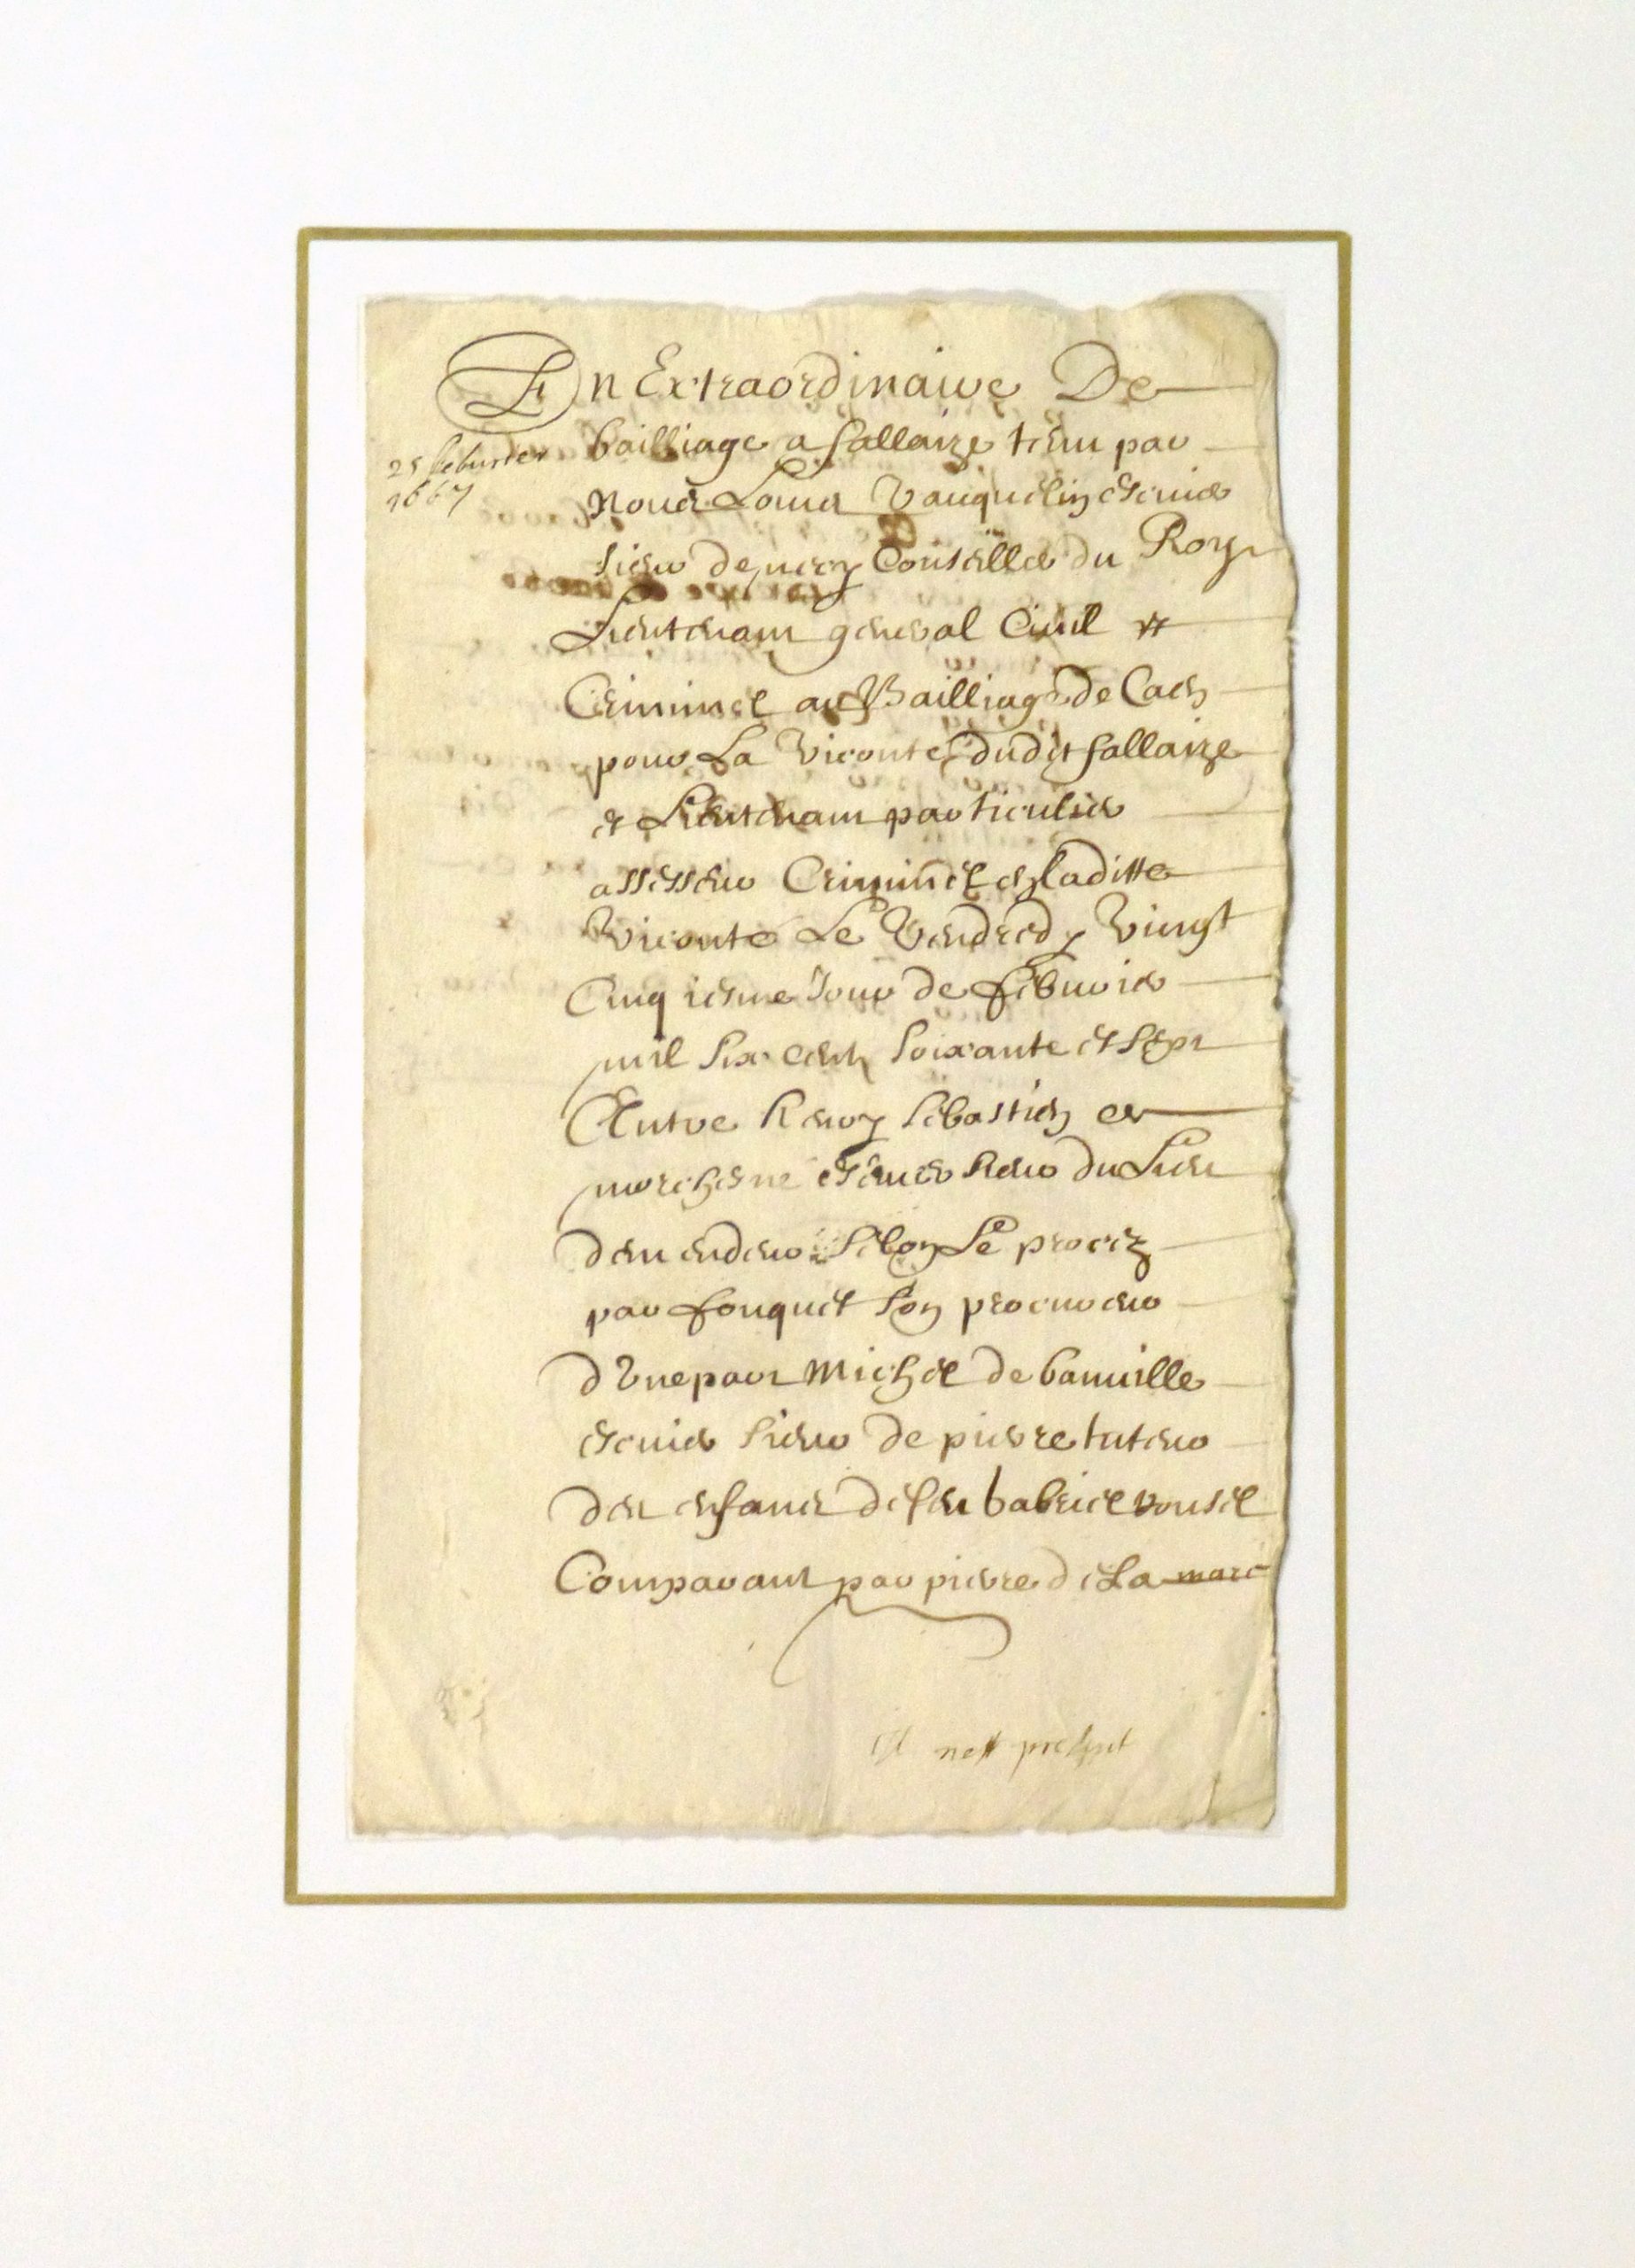 En Extraordinaire De
25 febvrier
1667
bailliage a fallaize tenu par
Nous Louis Vauquelin Escuier
sieur de necy Conseiller du Roy
Lieutenant general Civil et
Criminel au Bailliage de Caen
pour La Viconté dudit fallaize
et Lieutenant particulier
assesseur Criminel en laditte
Viconté Le Vendredy Vingt
Cinq iesme Jour de febvrier
mil six centz soixante et sept
Entre Henry sebastien
escuier sieur du
demendeur selon Le procez
par fouquet son procureur
d'Une part Michel de banville
escuier sieur de pierre tuteur
des enfans de feu
Comparant par pierre de La mare
Il nest present